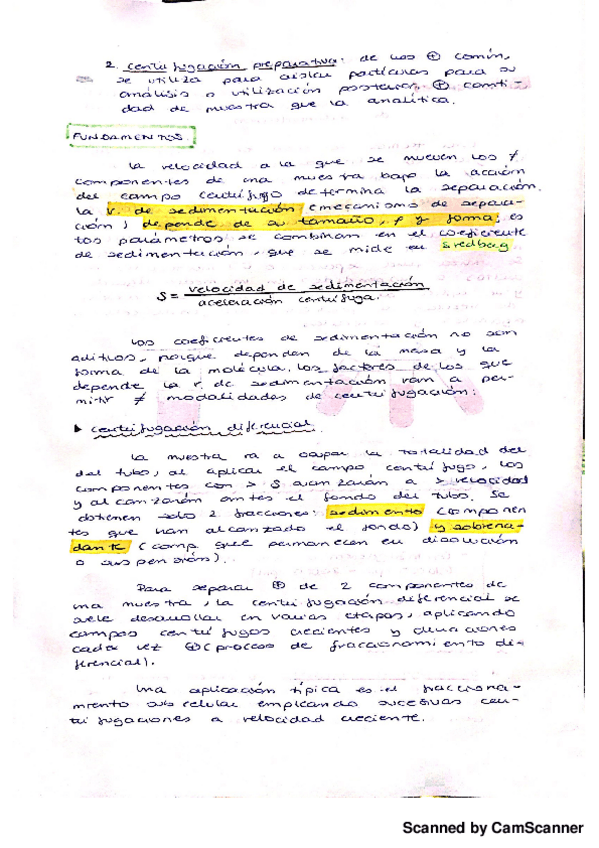 2. centrifugación preparativa: de uso ⊕ común,
se utiliza para aislar partículas para su
análisis o utilización posterior. ⊕ canti-
dad de muestra que la analítica.
FUNDAMENTOS
La velocidad a la que se mueven los ≠
componentes de una muestra bajo la acción
del campo centrífugo determina la separación.
La v. de sedimentación (mecanismo de separa-
ción) depende de su tamaño, ρ y forma; es
tos parámetros se combinan en el coeficiente
de sedimentación, que se mide en Svedberg
S = velocidad de sedimentación
aceleración centrífuga.
Los coeficientes de sedimentación no son
aditivos, porque dependen de la masa y la
forma de la molécula. Los factores de los que
depende la v. de sedimentación van a per-
mitir ≠ modalidades de centrifugación:
▸ centrifugación diferencial
La muestra va a ocupar la totalidad del
del tubo, al aplicar el campo centrífugo, los
componentes con > S avanzarán a > velocidad
y alcanzarán antes el fondo del tubo. Se
obtienen solo 2 fracciones: sedimento (componen
tes que han alcanzado el fondo) y sobrena-
dante (comp. que permanecen en disolución
o suspensión).
Para separar ⊕ de 2 componentes de
una muestra, la centrifugación diferencial se
suele desarrollar en varias etapas, aplicando
campos centrífugos crecientes y duraciones
cada vez ⊕ (proceso de fraccionamiento di-
ferencial).
Una aplicación típica es el fracciona-
miento subcelular empleando sucesivas cen-
trifugaciones a velocidad creciente.
Scanned by CamScanner